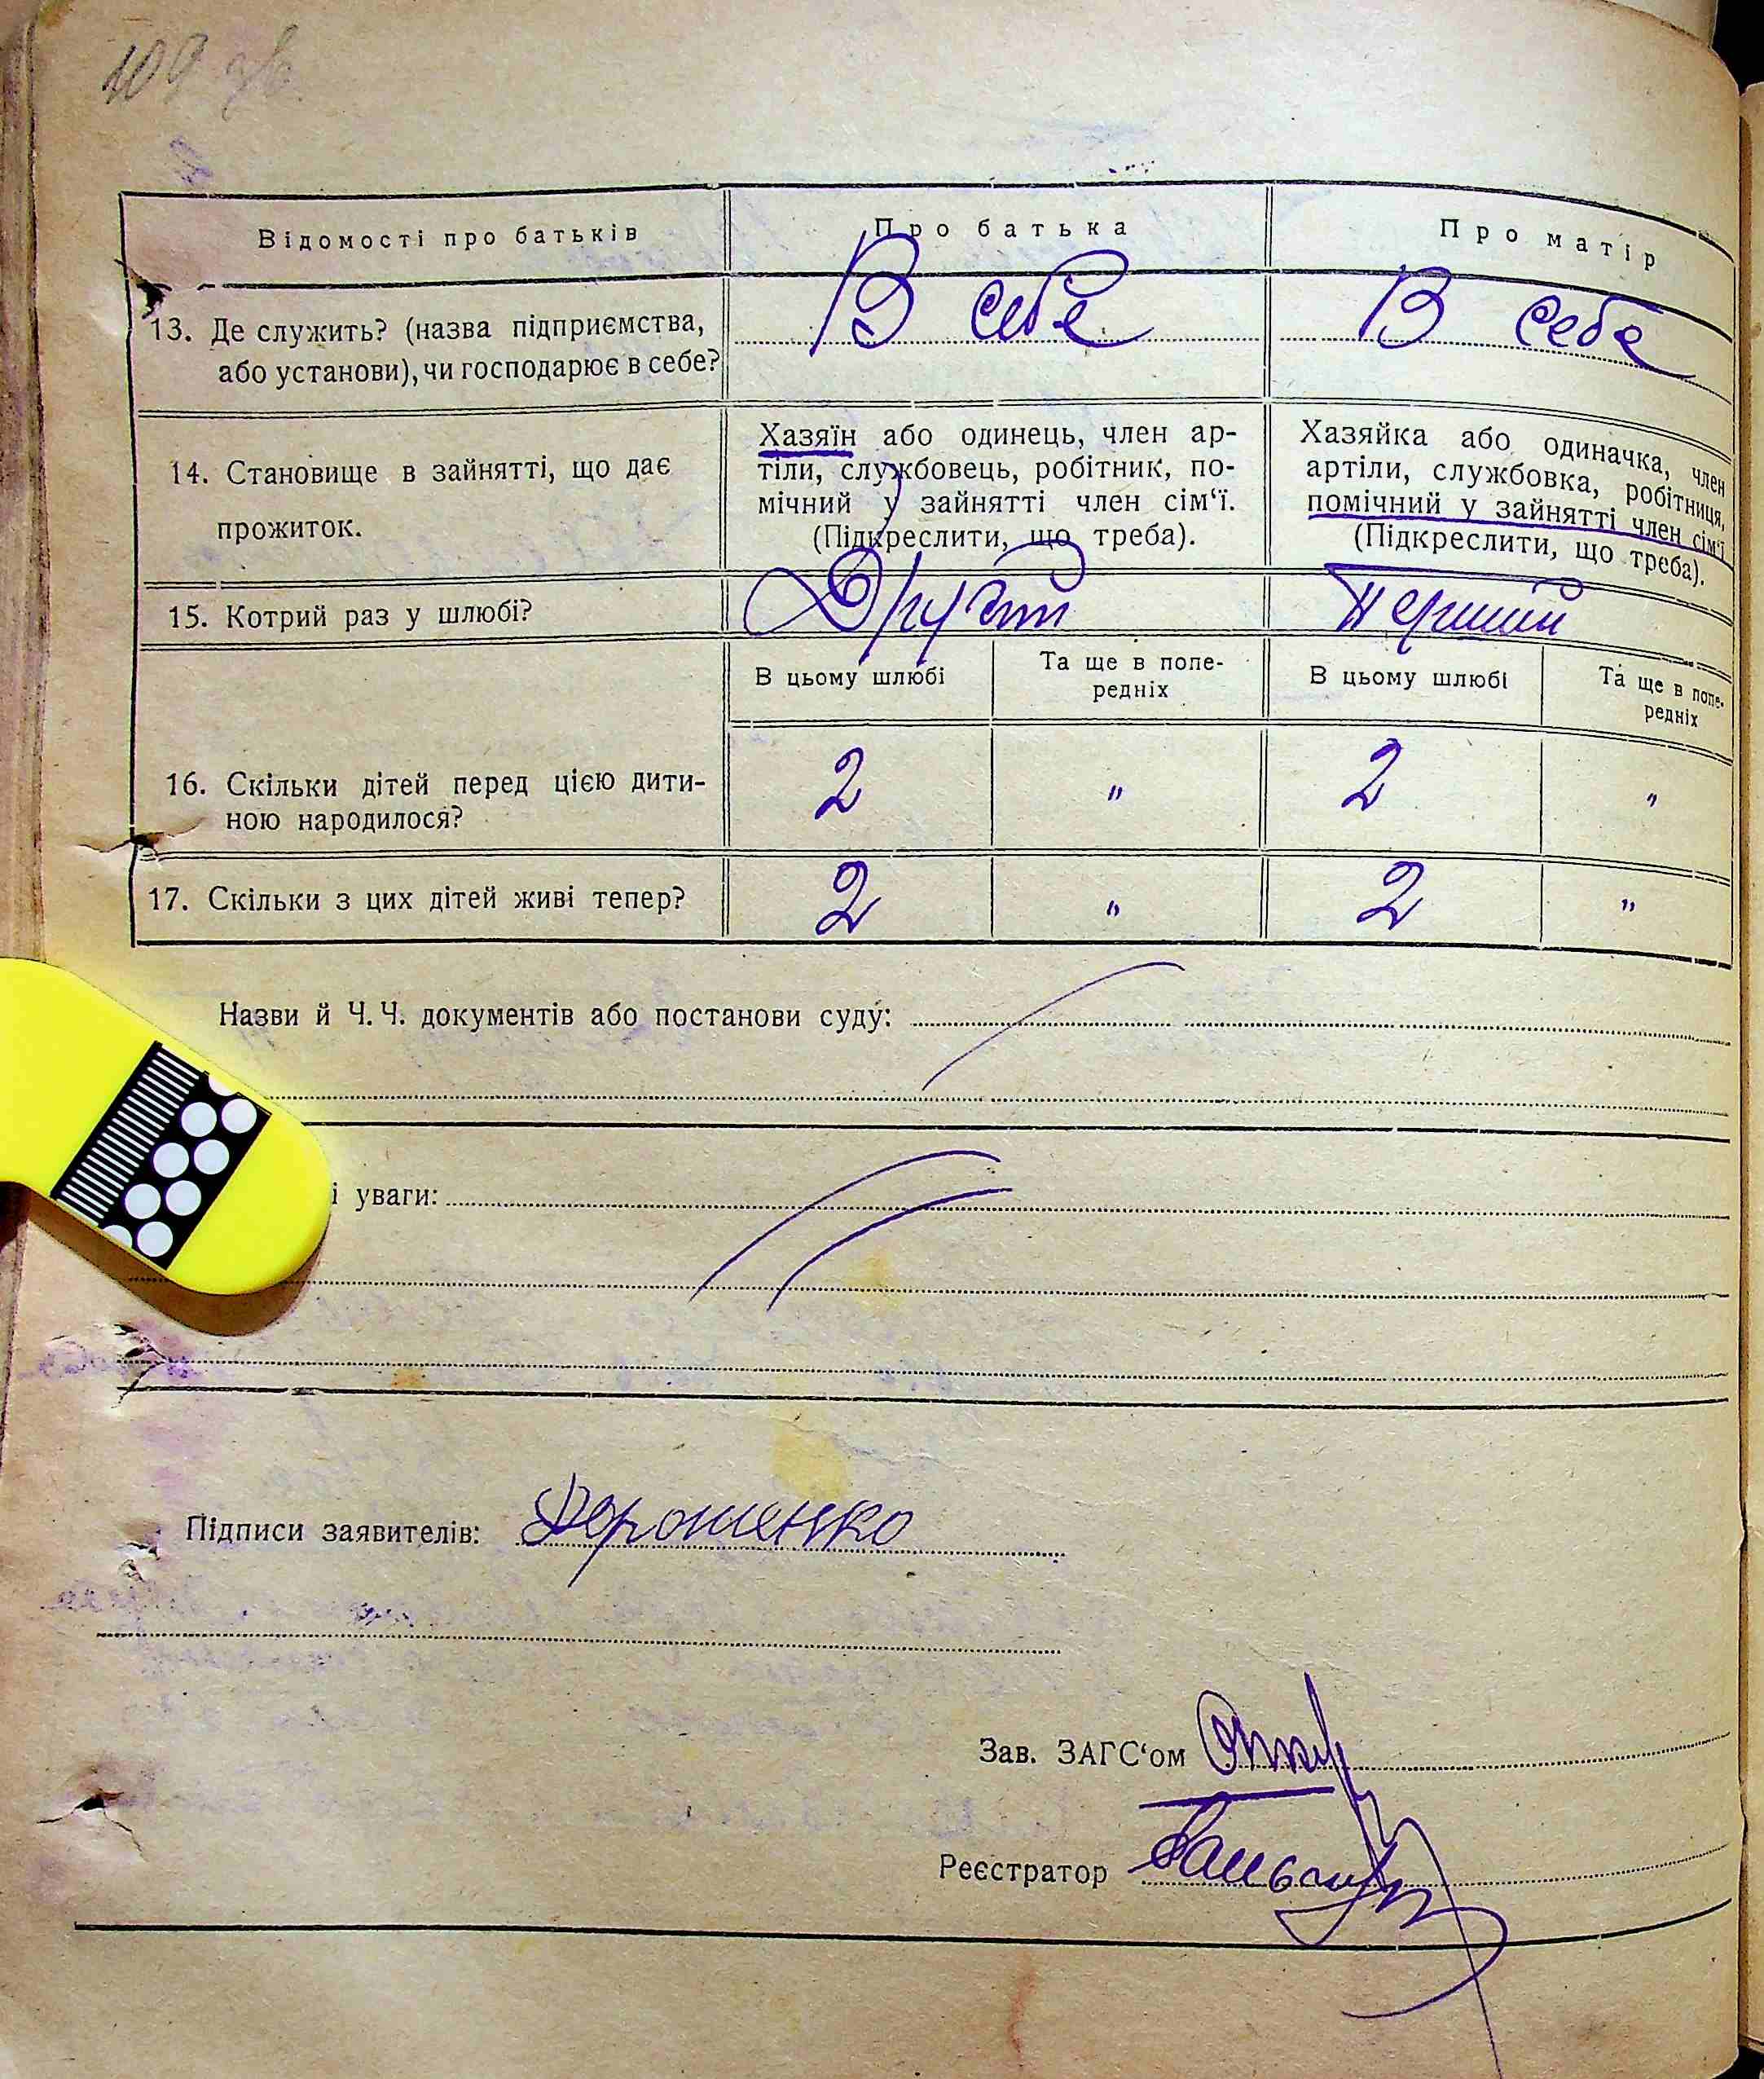 109 зв.
Відомості про батьків
Про батька
Про матір
13. Де служить? (назва підприємства,
або установи), чи господарює в себе?
В себе
В себе
14. Становище в зайнятті, що дає
прожиток.
Хазяїн або одинець, член ар-
тіли, службовець, робітник, по-
мічний у зайнятті член сім‘ї.
(Підкреслити, що треба).
Хазяйка або одиначка, член
артіли, службовка, робітниця,
помічний у зайнятті член сім‘ї
(Підкреслити, що треба).
15. Котрий раз у шлюбі?
Другий
Перший
В цьому шлюбі
Та ще в попе-
редніх
В цьому шлюбі
Та ще в попе-
редніх
16. Скільки дітей перед цією дити-
ною народилося?
2 " 2 "
17. Скільки з цих дітей живі тепер?
2 " 2 "
Назви й Ч. Ч. документів або постанови суду:
і уваги:
Підписи заявителів: Дорошенко
Зав. ЗАГС‘ом
Реєстратор